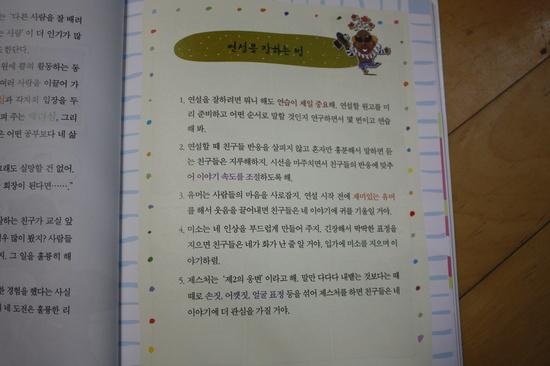 는 '다른 사람을 잘 배려
는 사람'이 더 인기가 많
도 한단다.
원에 뽑혀 활동하는 동
여러 사람을 이끌어 가
과 각자의 입장을 두
라 하는 그리
은 어떤 공부보다 네 삶
그래도 실망할 건 없어.
회장이 된다면……."
말하는 친구가 교실 앞
우 많이 봤지? 사람들
지. 그 일을 훌륭히 해
한 경험을 했다는 사실
네 도전은 훌륭한 리
연설을 잘하는 법
1. 연설을 잘하려면 뭐니 해도 연습이 제일 중요해. 연설할 원고를 미
리 준비하고 어떤 순서로 말할 것인지 연구하면서 몇 번이고 연습
해 봐.
2. 연설할 때 친구들 반응을 살피지 않고 혼자만 흥분해서 말하면 듣
는 친구들은 지루해하지. 시선을 마주치면서 친구들의 반응에 맞추
어 이야기 속도를 조절하도록 해.
3. 유머는 사람들의 마음을 사로잡지. 연설 시작 전에 재미있는 유머
를 해서 웃음을 끌어내면 친구들은 네 이야기에 귀를 기울일 거야.
4. 미소는 네 인상을 부드럽게 만들어 주지. 긴장해서 딱딱한 표정을
지으면 친구들은 네가 화가 난 줄 알 거야. 입가에 미소를 지으며 이
야기하렴.
5. 제스처는 '제2의 웅변'이라고 해. 말만 다다다 내뱉는 것보다는 때
때로 손짓, 어깻짓, 얼굴 표정 등을 섞어 제스처를 하면 친구들은 네
이야기에 더 관심을 가질 거야.